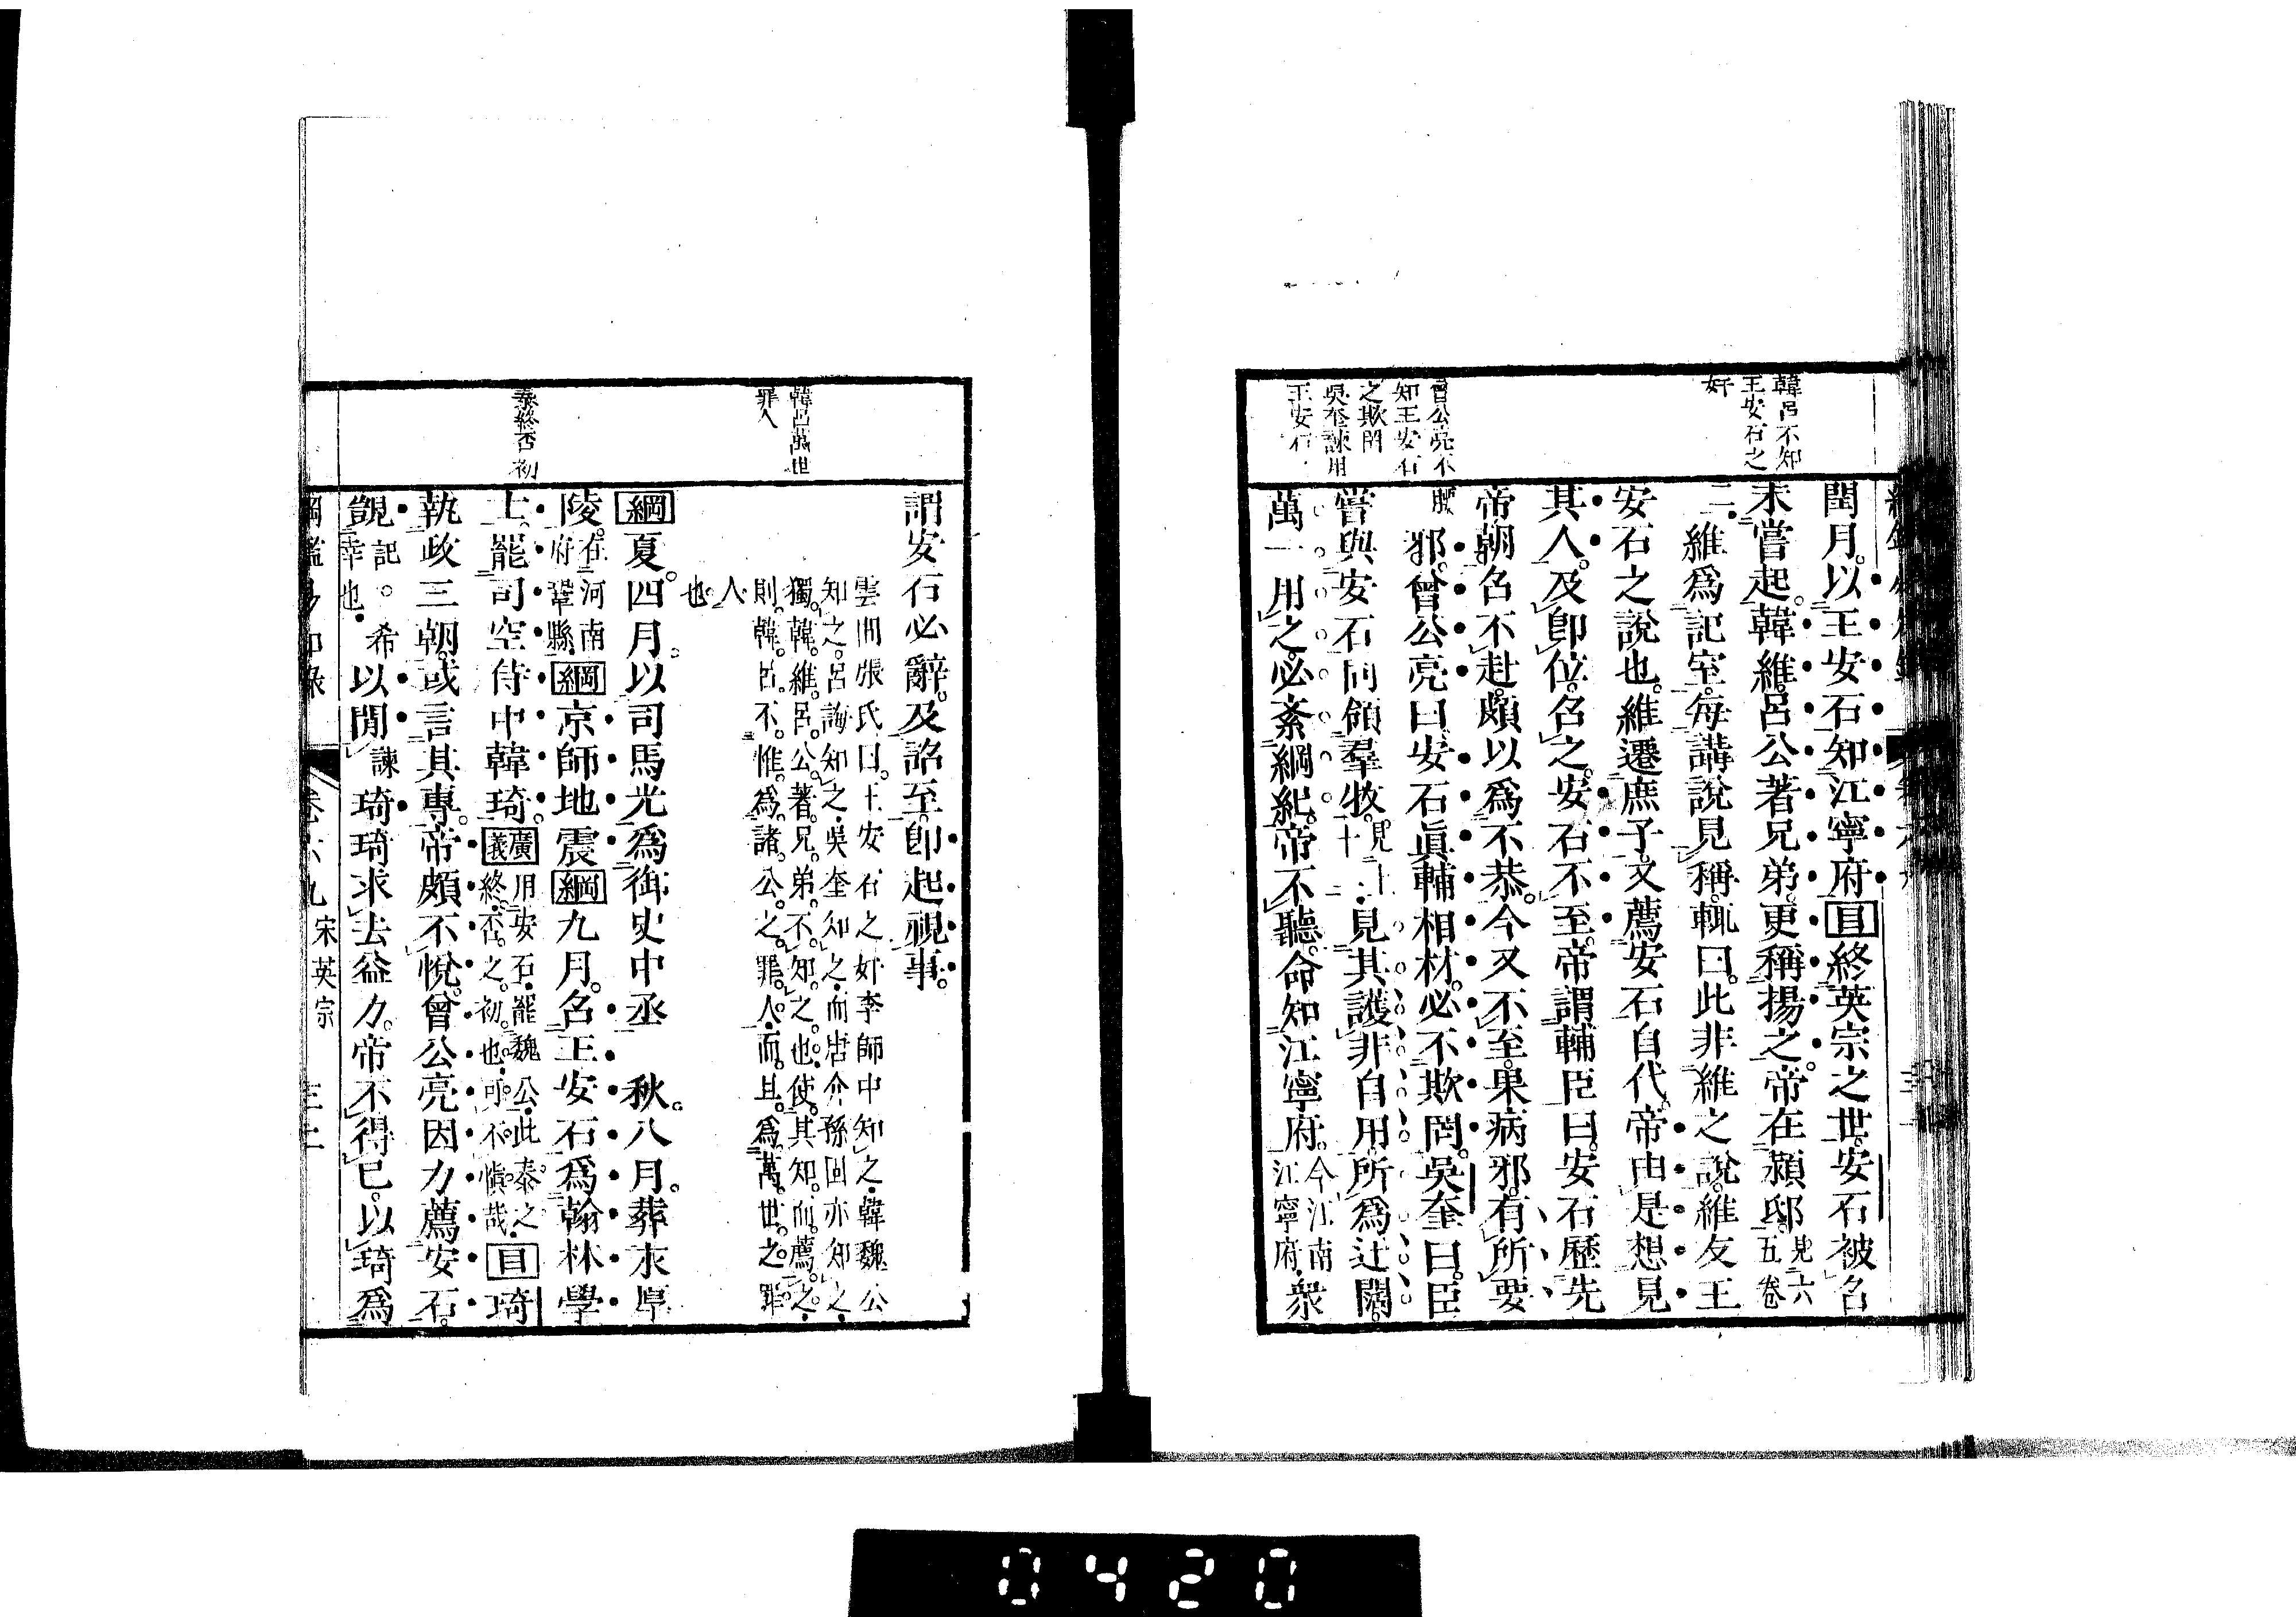 韓呂不知
王安石之
奸
曾公亮不
知王安石
之欺罔
吳奎諫用
王安石
閏月。以王安石知江寧府目終英宗之世。安石被召
未嘗起。韓維。呂公著兄弟。更稱揚之。帝在潁邸。見六
五卷
二。維爲記室。每講說見稱。輒曰。此非維之說。維友王
安石之說也。維遷庶子。又薦安石自代。帝由是想見
其人。及卽位。召之。安石不至。帝謂輔臣曰。安石歷先
帝朝。召不赴。頗以爲不恭。今又不至。果病邪。有所要
邪。曾公亮曰。安石眞輔相材。必不欺罔。吳奎曰。臣
嘗與安石同領羣牧。見其護非自用。所爲迂闊。
萬一用之。必紊綱紀。帝不聽。命知江寧府。今江南
江寧府。衆
韓呂萬世
罪人
泰終否初
謂安石必辭。及詔至。卽起視事。
雲間張氏曰。王安石之奸。李師中知之。韓魏公
知之。呂誨知之。吳奎知之。而唐介孫固亦知之。
獨韓維。呂公著。兄弟。不知之也。使其知而薦之。
則韓呂不惟爲諸公之罪人。而且爲萬世之罪
人也。
綱夏。四月。以司馬光爲御史中丞 秋。八月。葬永厚
陵。在河南
府鞏縣綱京師地震綱九月。召王安石爲翰林學
士。罷司空侍中韓琦。廣義用安石。罷魏公。此泰之
終。否之初也。可不愼哉。目琦
執政三朝。或言其專。帝頗不悅。曾公亮因力薦安石。
覬記。希
幸也。以閒諫琦琦求去益力。帝不得已。以琦爲
宋英宗